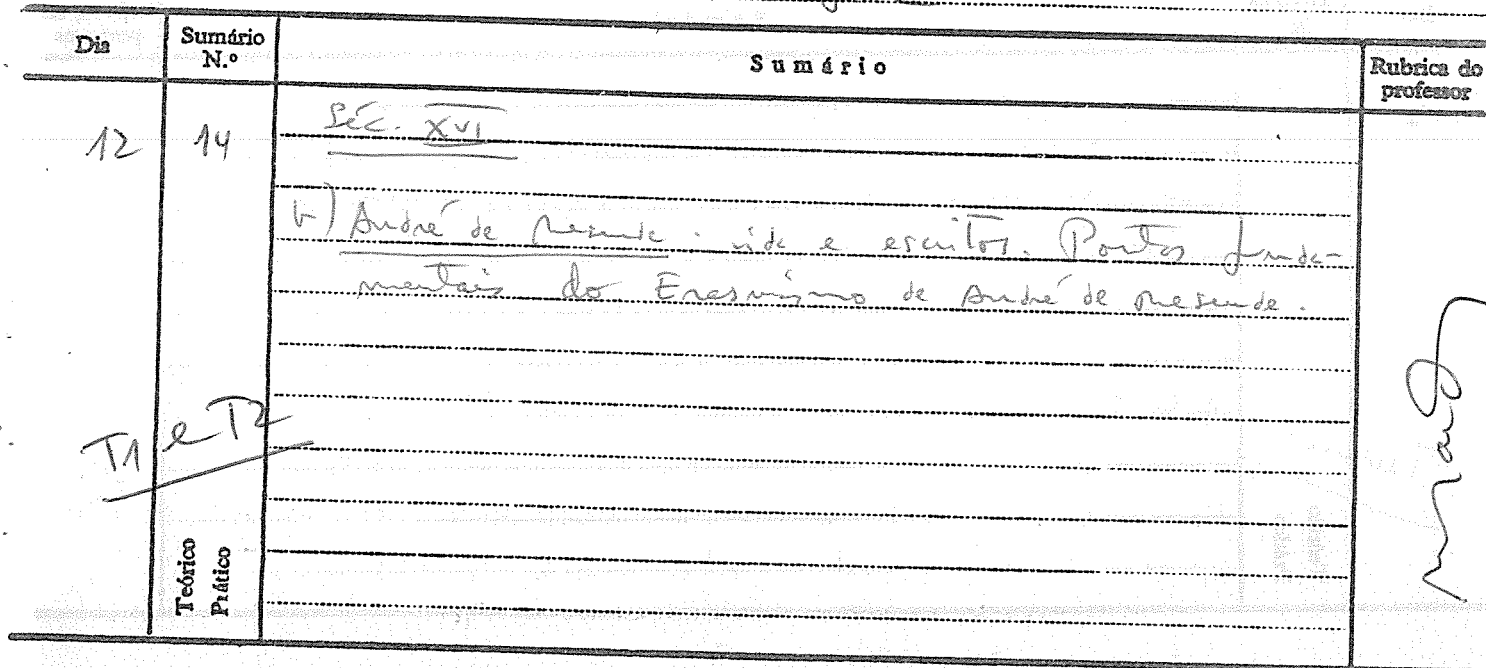 Dia
Sumário N.º
Sumário
Rubrica do professor
12
14
Séc. XVI
b) André de Resende: vida e escritos. Pontos funda-
mentais do Erasmismo de André de Resende.
T1 e T2
Teórico
Prático